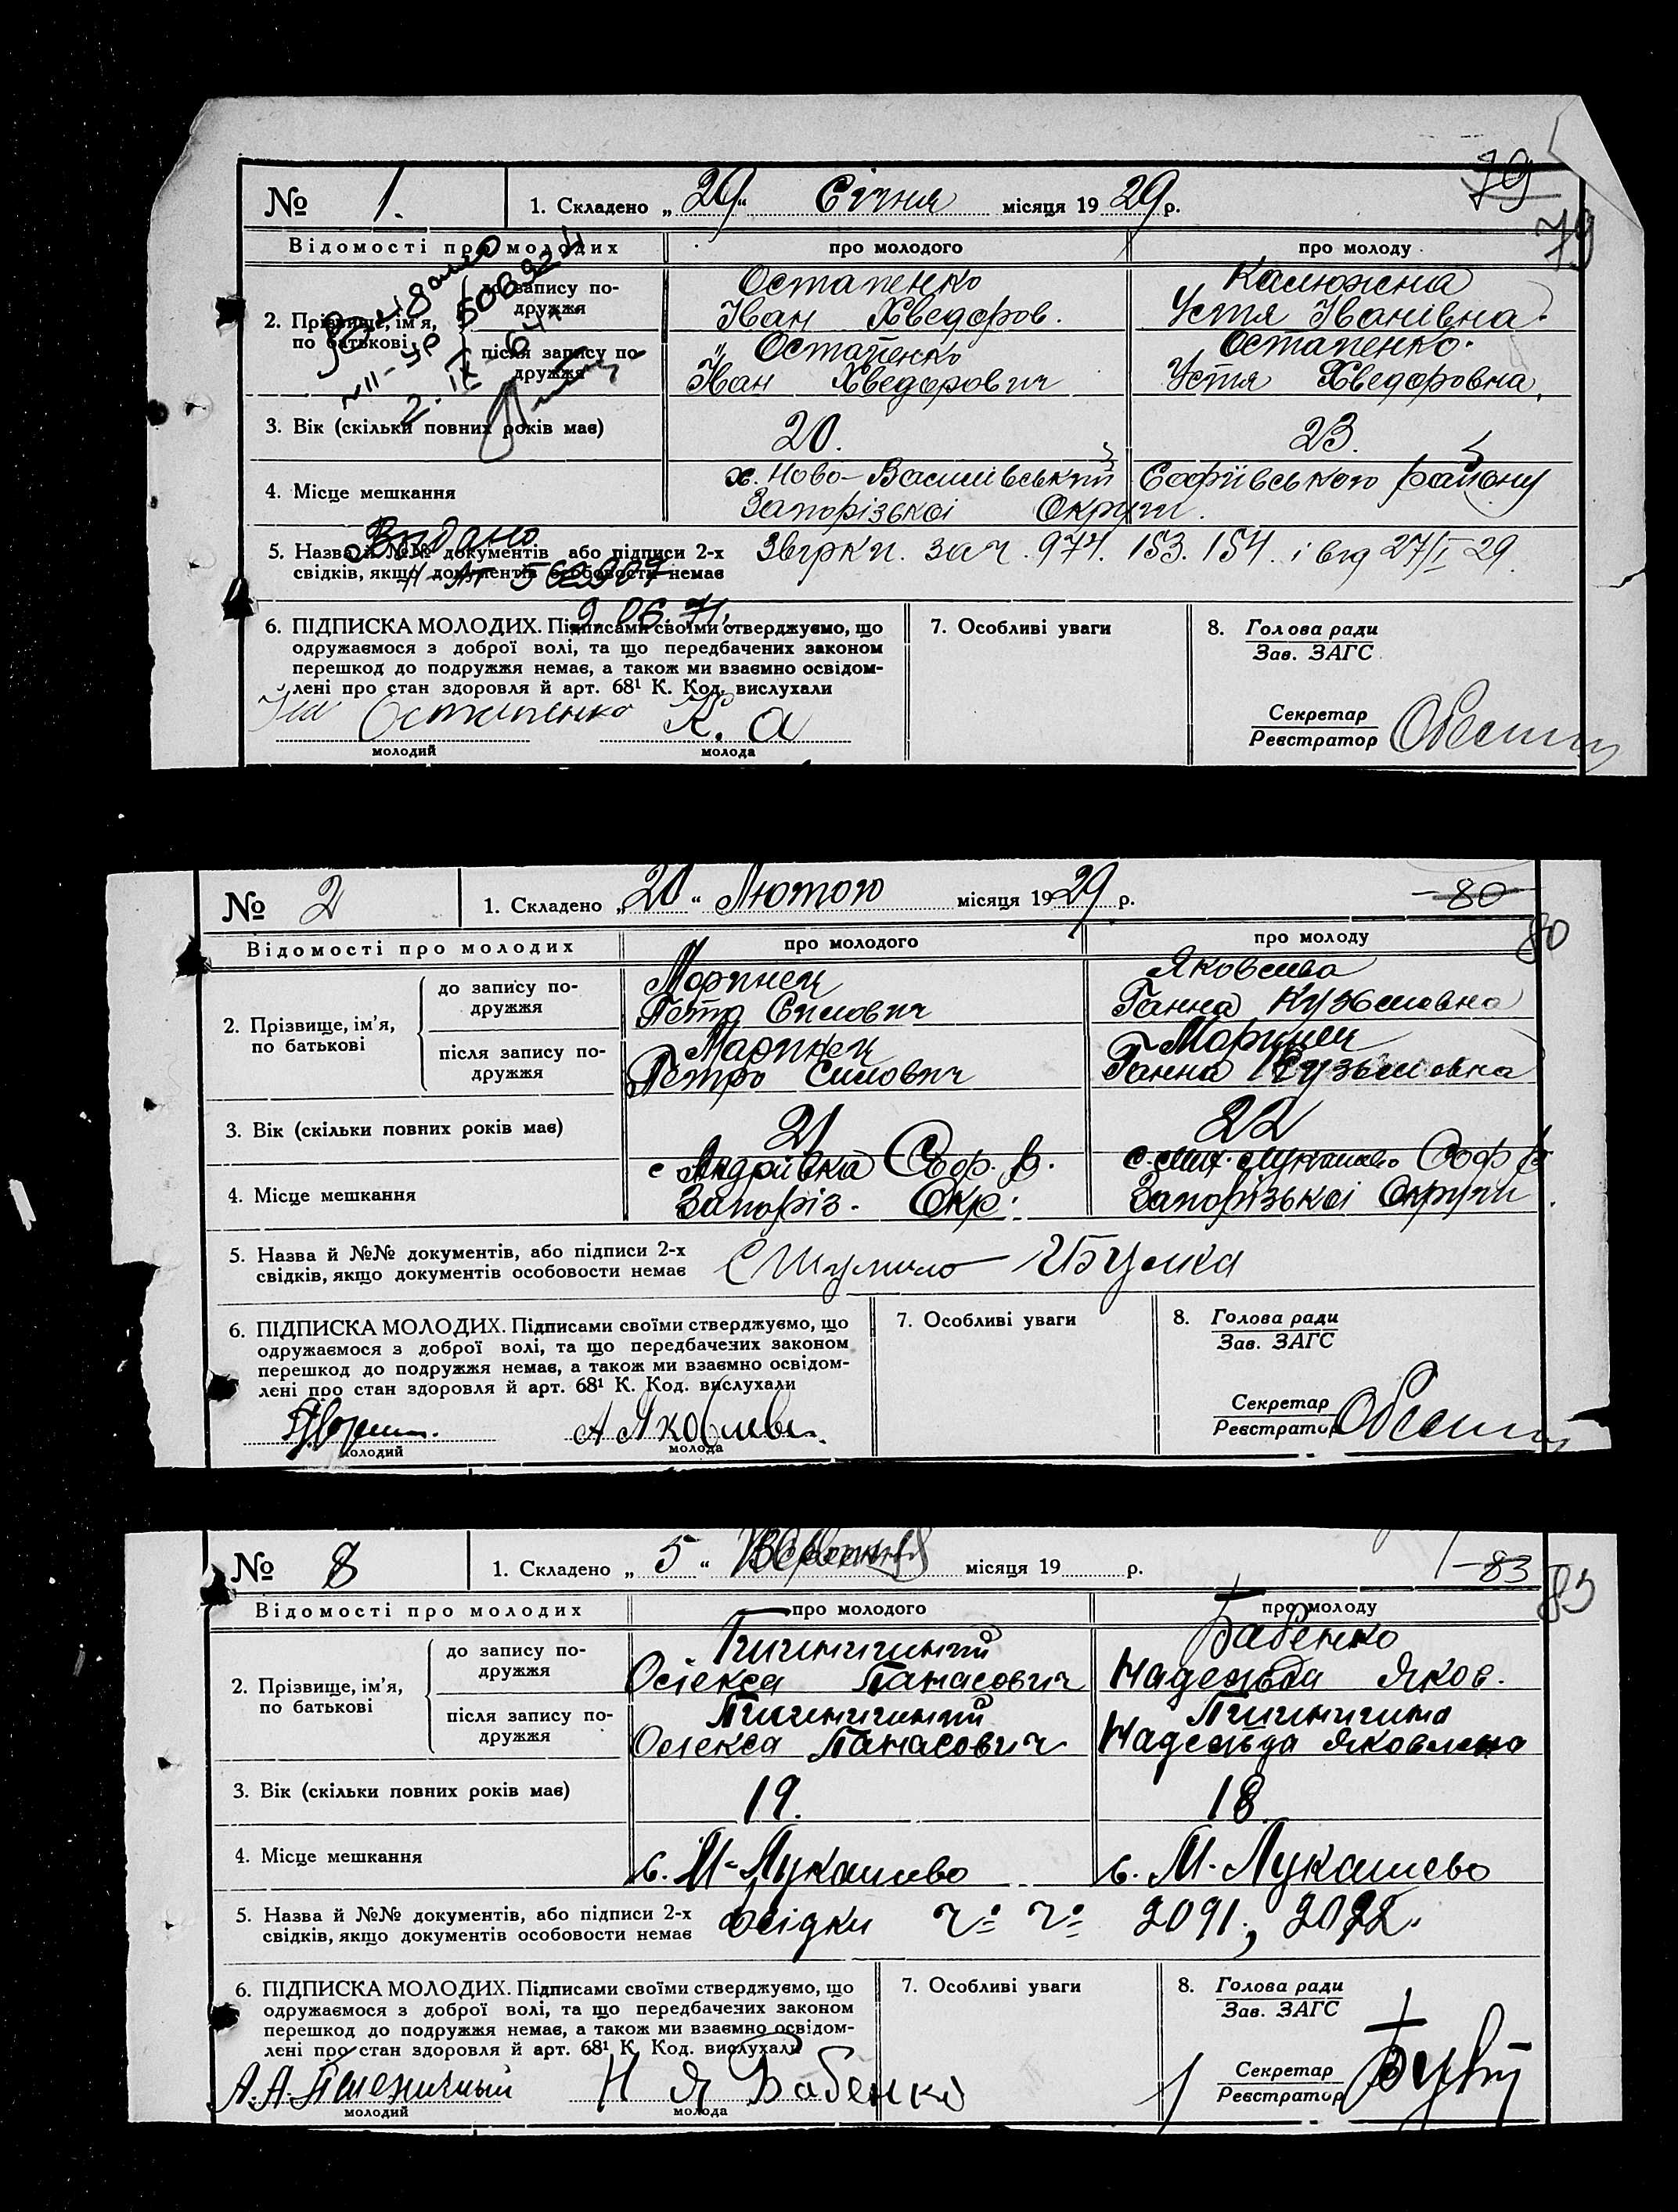 79
№ 1. 1. Складено „29“ Січня місяця 1929 р.
79
Відомості про молодих про молодого про молоду
2. Прізвище, ім'я, по батькові
до запису подружжя
Остапенко Калюжна
Іван Хведоров. Устя Іванівна.
після запису подружжя
„ Остапенко Остапенко.
Іван Хведорович Устя Хведоровна,
Видано
VII-УР 506924
2. IX 64 г.
3. Вік (скільки повних років має) 20. 23.
4. Місце мешкання х. Ново-Василівський Софіївського району
Запорізької Округи.
Видано
5. Назва й №№ документів або підписи 2-х
свідків, якщо документів особовости немає
974. 153. 154. і від 27/I 29.
9.06.71.
6. ПІДПИСКА МОЛОДИХ. Підписами своїми стверджуємо, що
одружаємося з доброї волі, та що передбачених законом
перешкод до подружжя немає, а також ми взаємно освідом-
лені про стан здоровля й арт. 68¹ К. Код. вислухали
Остапенко К. а
молодий молода
7. Особливі уваги
8. Голова ради
Зав. ЗАГС
Секретар
Реєстратор
№ 2 1. Складено „20“ Лютого місяця 1929 р. 80
80
Відомості про молодих про молодого про молоду
2. Прізвище, ім'я, по батькові
до запису подружжя
Моринец Яковлива
Петро Силович Ганна Кузьмовна
після запису подружжя
Моринец Моринец
Петро Силович Ганна Кузьмовна
3. Вік (скільки повних років має) 21 22
4. Місце мешкання с Андріївка Соф. р. с. Мих. Лукашево Соф р
Запоріз. Окр. Запорізької Округи.
5. Назва й №№ документів, або підписи 2-х
свідків, якщо документів особовости немає
6. ПІДПИСКА МОЛОДИХ. Підписами своїми стверджуємо, що
одружаємося з доброї волі, та що передбачених законом
перешкод до подружжя немає, а також ми взаємно освідом-
лені про стан здоровля й арт. 68¹ К. Код. вислухали
молодий молода
7. Особливі уваги
8. Голова ради
Зав. ЗАГС
Секретар
Реєстратор
№ 8 1. Складено „5“ Вересня місяця 19 р. 83
83
Відомості про молодих про молодого про молоду
2. Прізвище, ім'я, по батькові
до запису подружжя
Пшиничний Бабенко
Олекса Панасович Надежда Яков.
після запису подружжя
Пшиничний Пшинична
Олекса Панасович Надежда Яковлевна
3. Вік (скільки повних років має) 19. 18
4. Місце мешкання с. М-Лукашево с. М-Лукашево
5. Назва й №№ документів, або підписи 2-х
свідків, якщо документів особовости немає
2091, 2092.
6. ПІДПИСКА МОЛОДИХ. Підписами своїми стверджуємо, що
одружаємося з доброї волі, та що передбачених законом
перешкод до подружжя немає, а також ми взаємно освідом-
лені про стан здоровля й арт. 68¹ К. Код. вислухали
А. А. Пшеничный Н Я Бабенко
молодий молода
7. Особливі уваги
8. Голова ради
Зав. ЗАГС
Секретар
Реєстратор